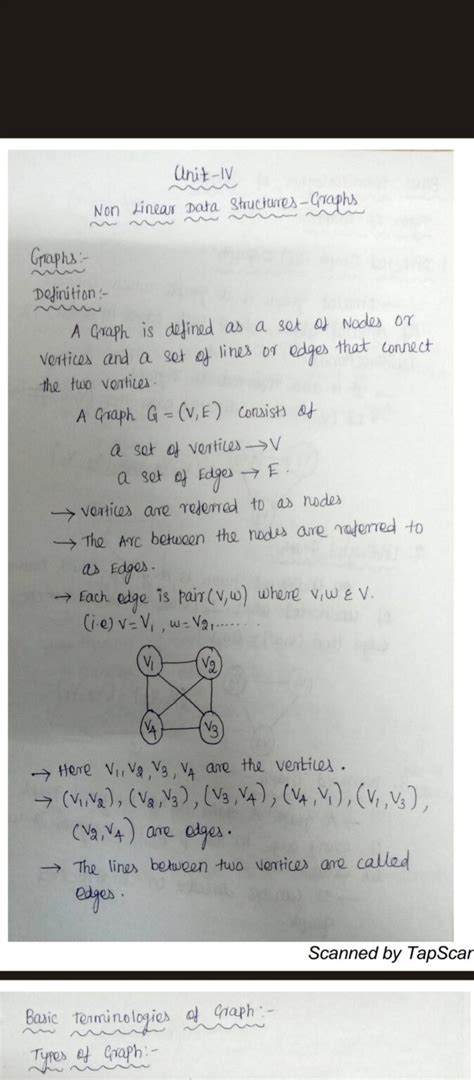 Unit-IV
Non Linear Data Structures-Graphs
Graphs:-
Definition:-
A Graph is defined as a set of Nodes or
vertices and a set of lines or edges that connect
the two vertices.
A Graph G = (V, E) consists of
a set of vertices → V
a set of Edges → E.
→ vertices are referred to as nodes
→ The Arc between the nodes are referred to
as Edges.
→ Each edge is pair (v,w) where v,w ε V.
(i.e) v = V1, w = V2, ......
V1 V2
V4 V3
→ Here V1, V2, V3, V4 are the vertices.
→ (V1, V2), (V2, V3), (V3, V4), (V4, V1), (V1, V3),
(V2, V4) are edges.
→ The lines between two vertices are called
edges.
Scanned by TapScan
Basic Terminologies of Graph:-
Types of Graph:-